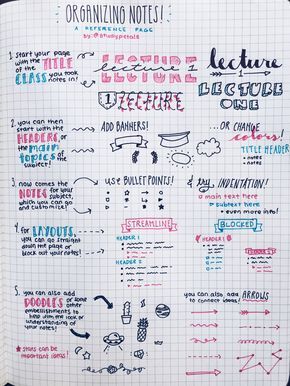 ORGANIZING NOTES!
A REFERENCE PAGE
by: @studypetals
1. start your page
with the TITLE
of the
CLASS you took
notes in!
LECTURE
lecture 1
LECTURE
1 LECTURE
lecture
1
LECTURE
ONE
2. you can
then start
with the
HEADERS,
or the main
TOPICS of the
subject!
ADD BANNERS!
...OR CHANGE
colors!
TITLE HEADER
• notes
• notes
3. now comes the
NOTES for your
subject,
which you can go
and customize!
USE BULLET POINTS!
& try INDENTATION!
main text here
↳ subtext here
• even more info!
4. for LAYOUTS,
you can go straight
down the page or
block out your notes!
STREAMLINE
HEADER 1
HEADER 2
BLOCKED
HEADER 1
5. you can also add
DOODLES or some
other
embellishments to
help with the look or
understanding of
your notes!
★ stars can be
important ideas!
you can also add ARROWS
to connect ideas!